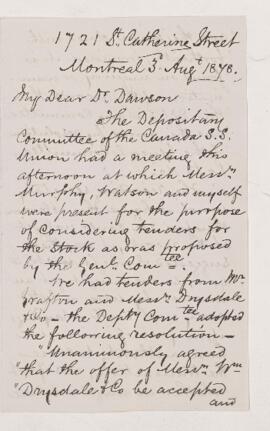 1721 St. Catherine Street
Montreal 3d Augt 1878.
My Dear Dr. Dawson
The Depositary
Committee of the Canada S.S.
Union had a meeting this
afternoon at which Messrs
Murphy, Watson and myself
were present for the purpose
of considering tenders for
the stock as was proposed
by the Genl. Comtee.
We had tenders from Mr
Grafton and Messrs Drysdale
& Co - the Depty Comtee adopted
the following resolution -
"Unanimously agreed
"that the offer of Messrs Wm
"Drysdale & Co be accepted
and